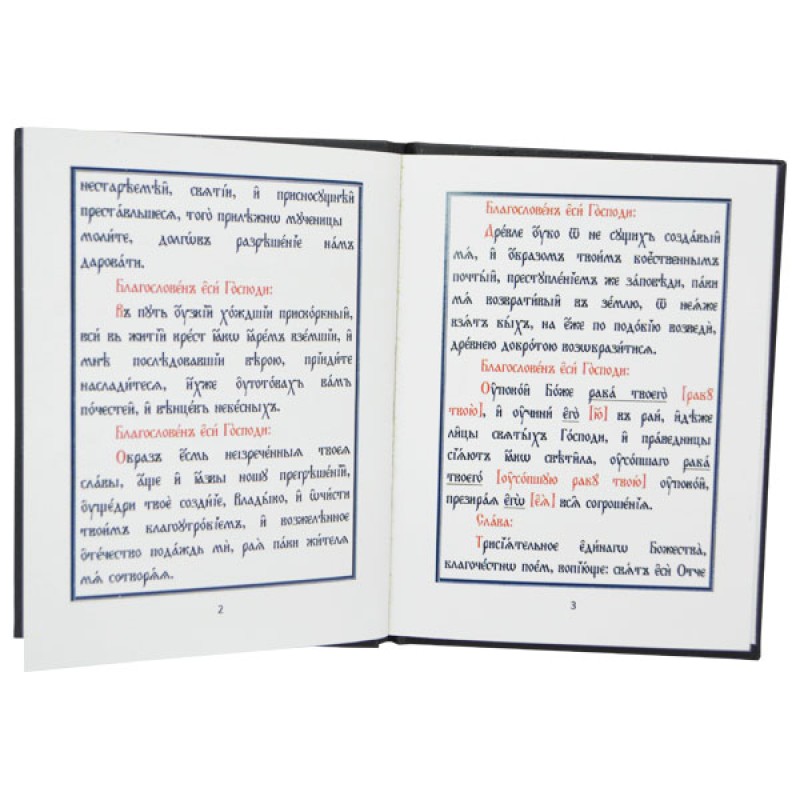 нестарѣемѣй, свѧтїи, и҆ присносꙋщнѣй
преста́вльшесѧ, того̀ прилѣ́жнѡ мꙋ́ченицы
моли́те, долгѡ́въ разрѣше́нїе на́мъ
дарова́ти.
Благослове́нъ є҆сѝ Го́споди:
Въ пꙋть ᲂу҆́зкїй хо́ждшїи приско́рбный,
всѝ въ житїѝ кре́стъ ꙗ҆́кѡ ꙗ҆ре́мъ взе́мшїи, и҆
мнѣ̀ послѣ́довавшїи вѣ́рою, прїиди́те
наслади́тесѧ, и҆́хже ᲂу҆гото́вахъ ва́мъ
по́честей, и҆ вѣнцє́въ небе́сныхъ.
Благослове́нъ є҆сѝ Го́споди:
Ѻ҆́бразъ є҆́смь неизрече́нныѧ твоеѧ̀
сла́вы, а҆́ще и҆ ꙗ҆́звы ношꙋ̀ прегрѣше́нїй,
ᲂу҆ще́дри твоѐ созда́нїе, Влады́ко, и҆ ѡ҆чи́сти
твои́мъ благоꙋтро́бїемъ, и҆ возжелѣ́нное
ѻ҆те́чество пода́ждь мѝ, раѧ̀ па́ки жи́телѧ
мѧ̀ сотворѧ́ѧ.
2
Благослове́нъ є҆сѝ Го́споди:
Дре́вле ᲂу҆́бо ѿ не сꙋ́щихъ созда́вый
мѧ̀, и҆ ѻ҆́бразомъ твои́мъ бже́ственнымъ
почты́й, престꙋпле́нїемъ же за́повѣди, па́ки
мѧ̀ возврати́вый въ зе́млю, ѿ неѧ́же
взѧ́тъ бы́хъ, на є҆́же по подо́бїю возведѝ,
дре́внею добро́тою возѡбрази́тисѧ.
Благослове́нъ є҆сѝ Го́споди:
Оу҆поко́й Бо́же раба̀ твоего̀ [рабꙋ̀
твою̀], и҆ ᲂу҆чинѝ є҆го̀ [ю҆̀] въ раѝ, и҆дѣ́же
ли́цы свѧты́хъ Го́споди, и҆ пра́ведницы
сїѧ́ютъ ꙗ҆́кѡ свѣти́ла, ᲂу҆со́пшаго раба̀
твоего̀ [ᲂу҆со́пшꙋю рабꙋ̀ твою̀] ᲂу҆поко́й,
презира́ѧ є҆гѡ̀ [є҆ѧ̀] всѧ̑ согреше́нїѧ.
Сла́ва:
Трисїѧ́тельное є҆ди́нагѡ Божества̀,
благоче́стнѡ пое́мъ, вопїю́ще: свѧ́тъ є҆сѝ Ѻ҆́тче
3